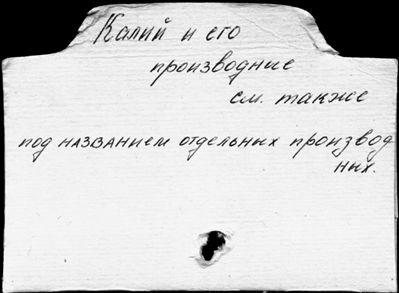 Калий и его
производные
см. также
под названием отдельных производ
ных.